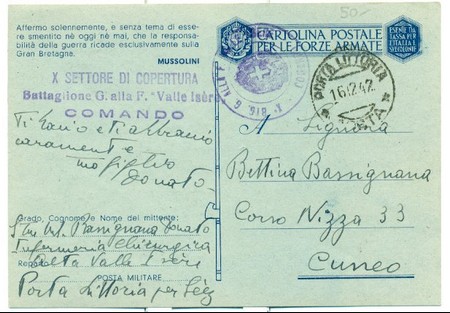 50-
Affermo solennemente, e senza tema di esse-
re smentito nè oggi nè mai, che la responsa-
bilità della guerra ricade esclusivamente sulla
Gran Bretagna.
MUSSOLINI
X SETTORE DI COPERTURA
Battaglione G. alla F. "Valle Isère"
COMANDO
Ti bacio e ti abbraccio
caramente
tuo figlio
Donato.
Grado, Cognome e Nome del mittente:
Bassignana Donato
Infermeria Chirurgica
Valle Isère
POSTA MILITARE
Porta Littoria per Séez
CARTOLINA POSTALE
PER LE FORZE ARMATE
ESENTE DA
TASSA PER
L'ITALIA E
PORTA LITTORIA
16.12.42
AOSTA
A Signora
Bettina Bassignana
Corso Nizza 33
Cuneo